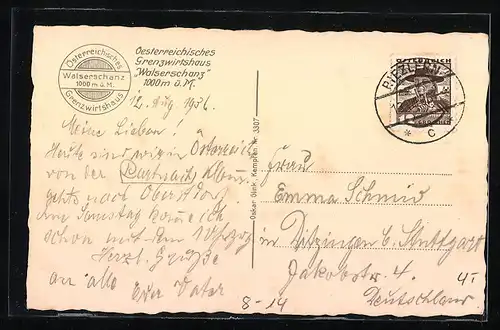 Österreichisches
Walserschanz
1000 m ü. M.
Grenzwirtshaus
Oesterreichisches
Grenzwirtshaus
„Walserschanz"
1000 m ü. M.
12. Aug 1936.
Meine Lieben!
Heute sind wir in Österreich
von der
gehts nach Oberstdorf
Am Samstag komme ich
schon mit dem Uhrzug
Herzl. Grüße
an alle Euer Vater
Oskar Glök, Kempten Nr. 3307
RIEZLERN
ÖSTERREICH
* c
Frau
Emma Schmid
in Ditzingen b. Stuttgart
Jakobstr. 4.
Deutschland
8-14
4T